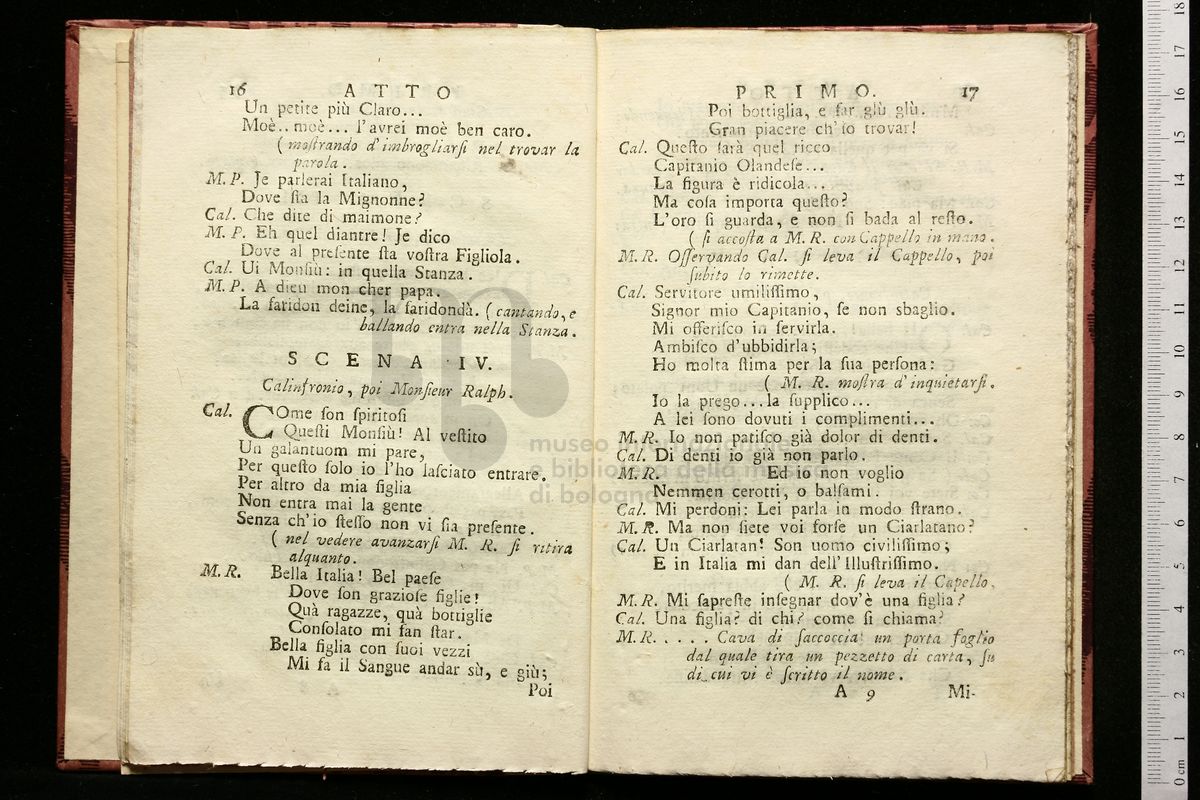 16 ATTO
Un petite più Claro...
Moè.. moè... l'avrei moè ben caro.
( moſtrando d'imbrogliarſi nel trovar la
parola.
M. P. Je parlerai Italiano,
Dove ſta la Mignonne?
Cal. Che dite di maimone?
M. P. Eh quel diantre! Je dico
Dove al preſente ſta voſtra Figliola.
Cal. Ui Monſiù: in quella Stanza.
M. P. A dieu mon cher papa.
La faridon deine, la faridondà. ( cantando, e
ballando entra nella Stanza.
SCENA IV.
Calinfronio, poi Monſieur Ralph.
Cal. COme ſon ſpiritoſi
Queſti Monſiù! Al veſtito
Un galantuom mi pare,
Per queſto ſolo io l'ho laſciato entrare.
Per altro da mia figlia
Non entra mai la gente
Senza ch'io ſteſſo non vi ſia preſente.
( nel vedere avanzarſi M. R. ſi ritira
alquanto.
M. R. Bella Italia! Bel paeſe
Dove ſon grazioſe figlie!
Quà ragazze, quà bottiglie
Conſolato mi fan ſtar.
Bella figlia con ſuoi vezzi
Mi fa il Sangue andar sù, e giù;
Poi
PRIMO. 17
Poi bottiglia, e far glù glù.
Gran piacere ch'io trovar!
Cal. Queſto ſarà quel ricco
Capitanio Olandeſe...
La figura è ridicola...
Ma coſa importa queſto?
L'oro ſi guarda, e non ſi bada al reſto.
( ſi accoſta a M. R. con Cappello in mano.
M. R. Oſſervando Cal. ſi leva il Cappello, poi
ſubito lo rimette.
Cal. Servitore umiliſſimo,
Signor mio Capitanio, ſe non sbaglio.
Mi offeriſco in ſervirla.
Ambiſco d'ubbidirla;
Ho molta ſtima per la ſua perſona:
( M. R. moſtra d'inquietarſi.
Io la prego...la ſupplico...
A lei ſono dovuti i complimenti...
M. R. Io non patiſco già dolor di denti.
Cal. Di denti io già non parlo.
M. R. Ed io non voglio
Nemmen cerotti, o balſami.
Cal. Mi perdoni: Lei parla in modo ſtrano.
M. R. Ma non ſiete voi forſe un Ciarlatano?
Cal. Un Ciarlatan! Son uomo civiliſſimo;
E in Italia mi dan dell'Illuſtriſſimo.
( M. R. ſi leva il Capello.
M. R. Mi ſapreſte inſegnar dov'è una figlia?
Cal. Una figlia? di chi? come ſi chiama?
M. R. . . . . Cava di ſaccoccia un porta foglio
dal quale tira un pezzetto di carta, ſu
di cui vi è ſcritto il nome.
A 9 Mi-
museo internazionale
e biblioteca della musica
di bologna
0 cm 1 2 3 4 5 6 7 8 9 10 11 12 13 14 15 16 17 18